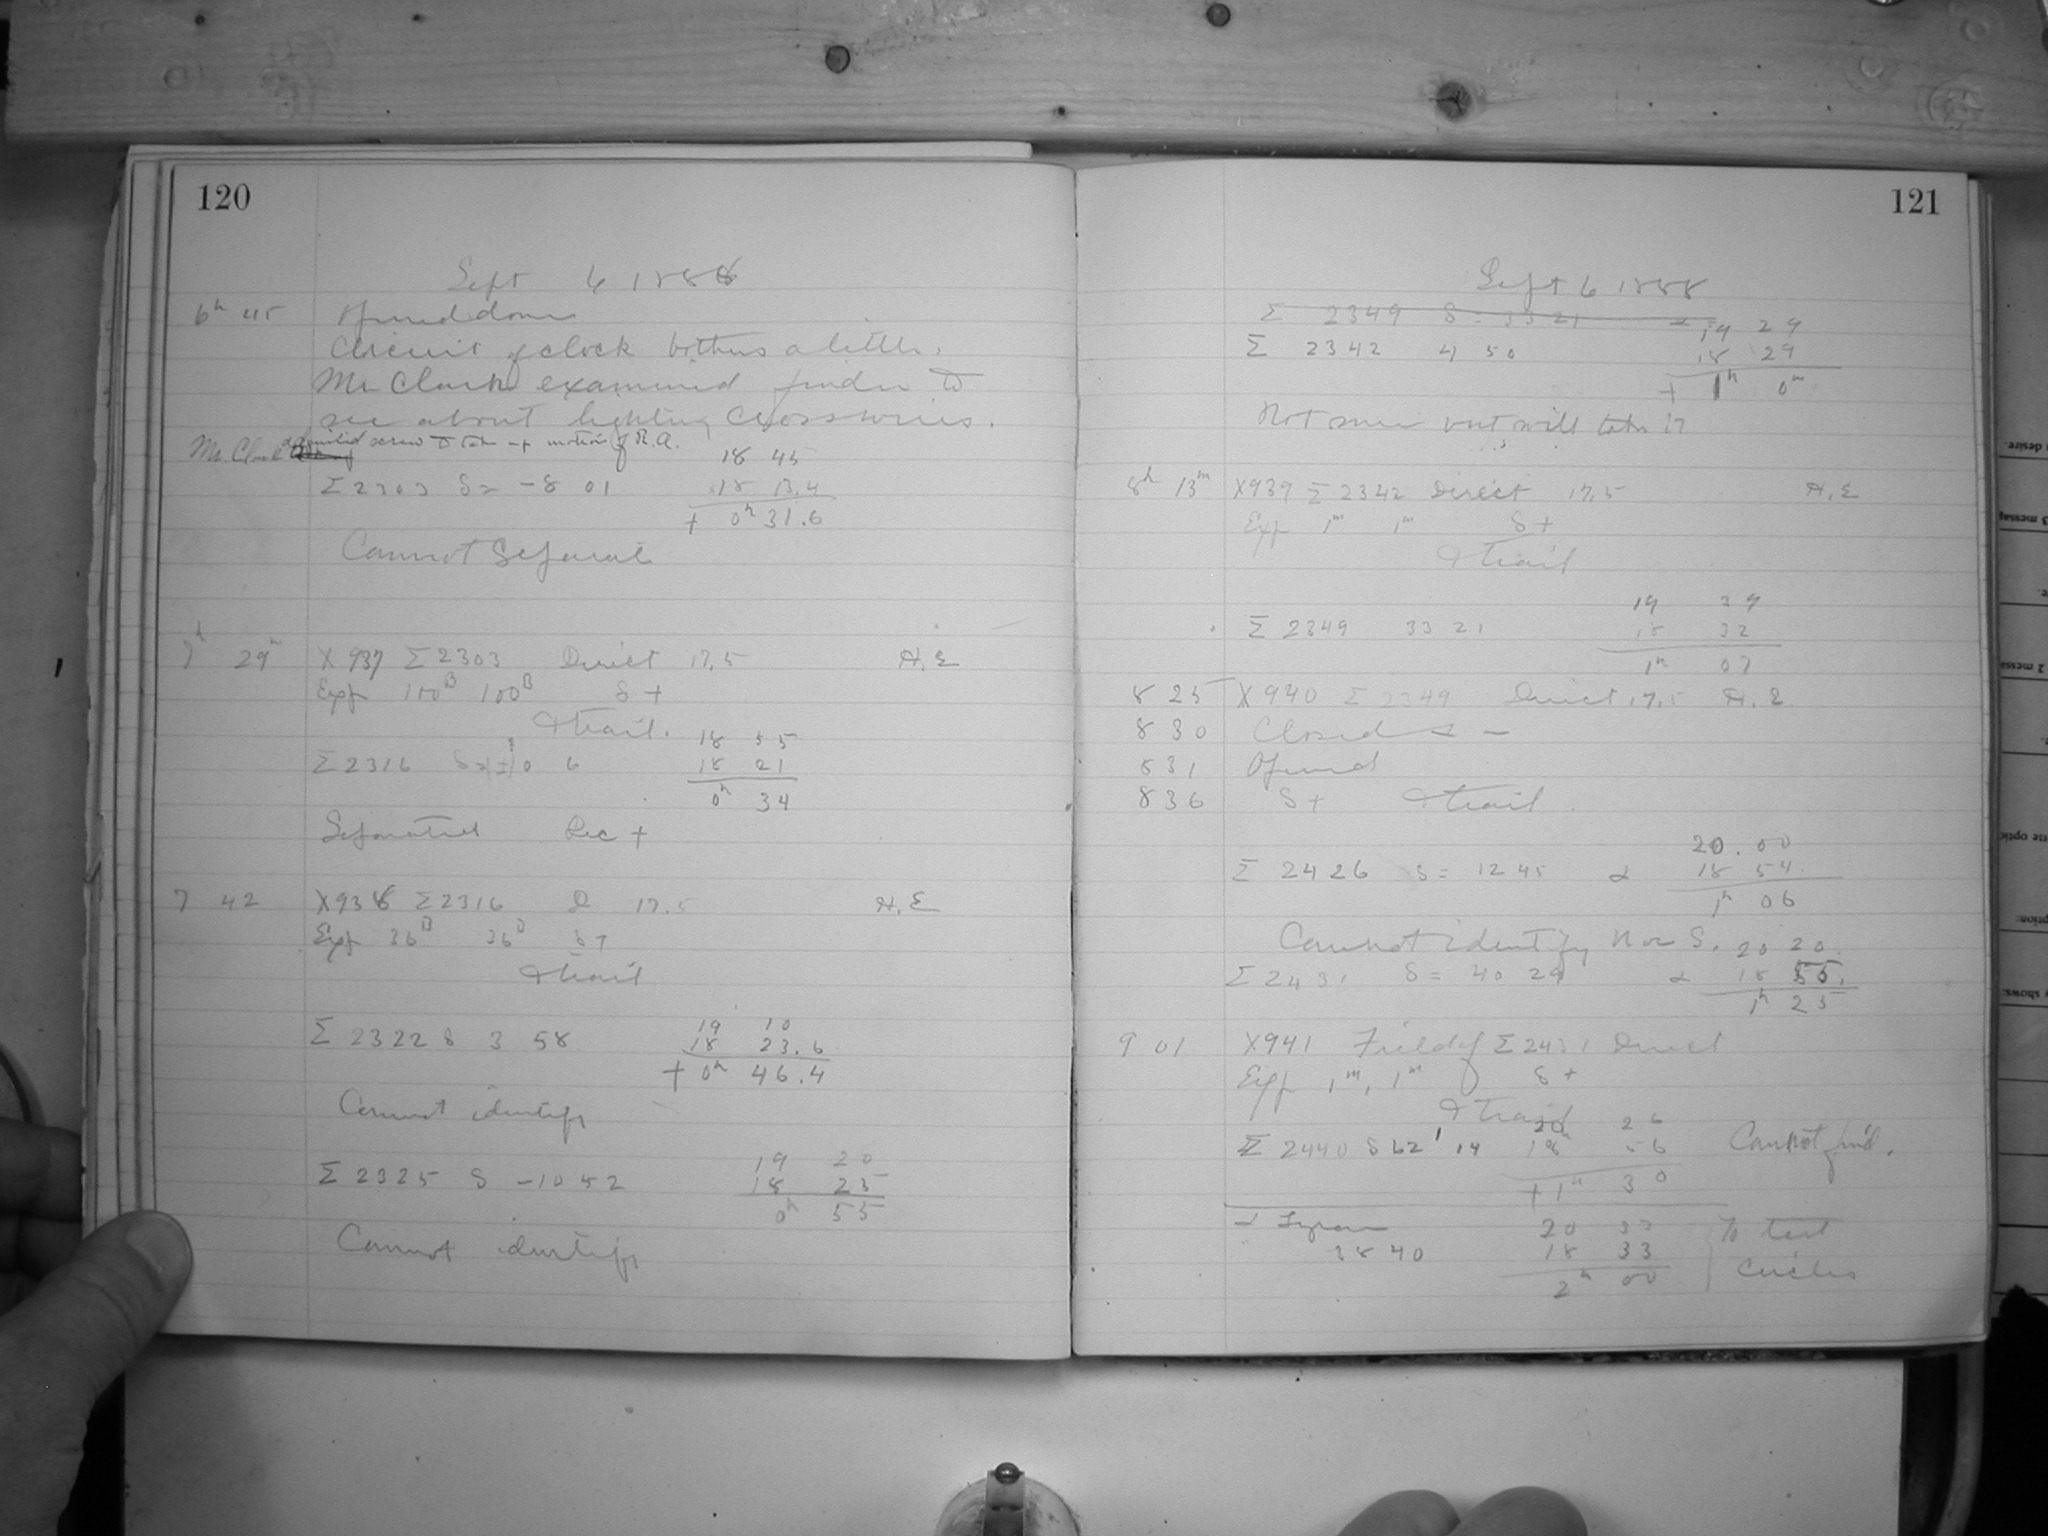 120
Sept 6 1888
6h 45 Opened dome
Circuit of clock bothers a little.
Mr Clark examined finder to
see about lighting crosswires.
Mr. Clark screw to take up motion of R.A.
18 45
Σ2303 δ = -8 01 18 13.4
+ 0h 31.6
Cannot Separate
7h 29m X937 Σ2303 Direct 17.5 H.E
Exp 100B 100B δ +
& trail.
18 55
Σ2316 δ= 0 6 18 21
0h 34
Separated Rec +
7 42 X938 Σ2316 D 17.5 H.E
Exp 36B 36B δ +
& trail
19 10
Σ2322 δ 3 58 18 23.6
+ 0h 46.4
Cannot identify
19 20
Σ2325 δ -10 52 18 25
0h 55
Cannot identify
121
Sept 6 1888
Σ 2349 δ = 33 21
19 29
Σ 2342 4 50 18 29
+ 1h 0m
Not sure but will take it
8h 13m X939 Σ2342 Direct 17.5 H.E
Exp 1m 1m δ +
& trail
19 39
Σ 2349 33 21 18 32
1h 07
8 25 X940 Σ 2349 Direct 17.5 H.E.
8 30 Closed
8 31 Opened
8 36 δ + & trail.
20.00
Σ 2426 δ = 12 45 α 18 54.
1h 06
Cannot identify N or S.
20 20
Σ2431 δ = 40 29 α 18 55.
1h 25
9 01 X941 Field of Σ2431 Direct
Exp 1m, 1m δ +
& trail
20h 26
Σ 2440 δ 62 14 18 56 Cannot find.
+ 1h 30
α Lyrae 20 33 To test
38 40 18 33 circles
2h 00